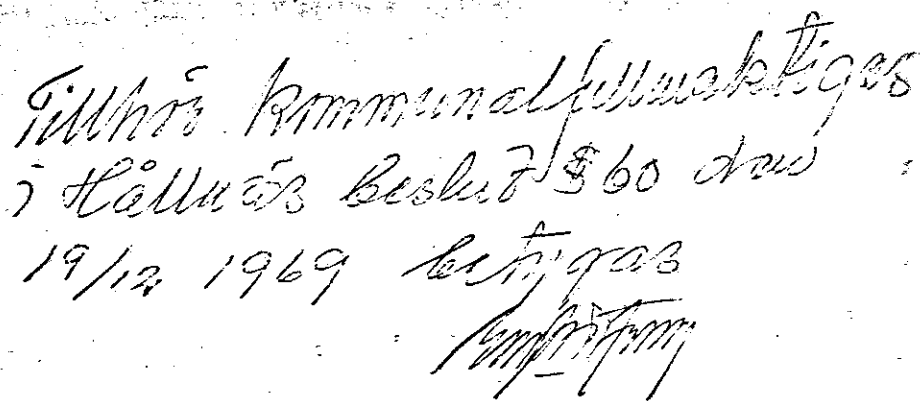 Tillhör kommunalfullmäktiges
i Hållnäs beslut § 60 den
19/12 1969 betygas